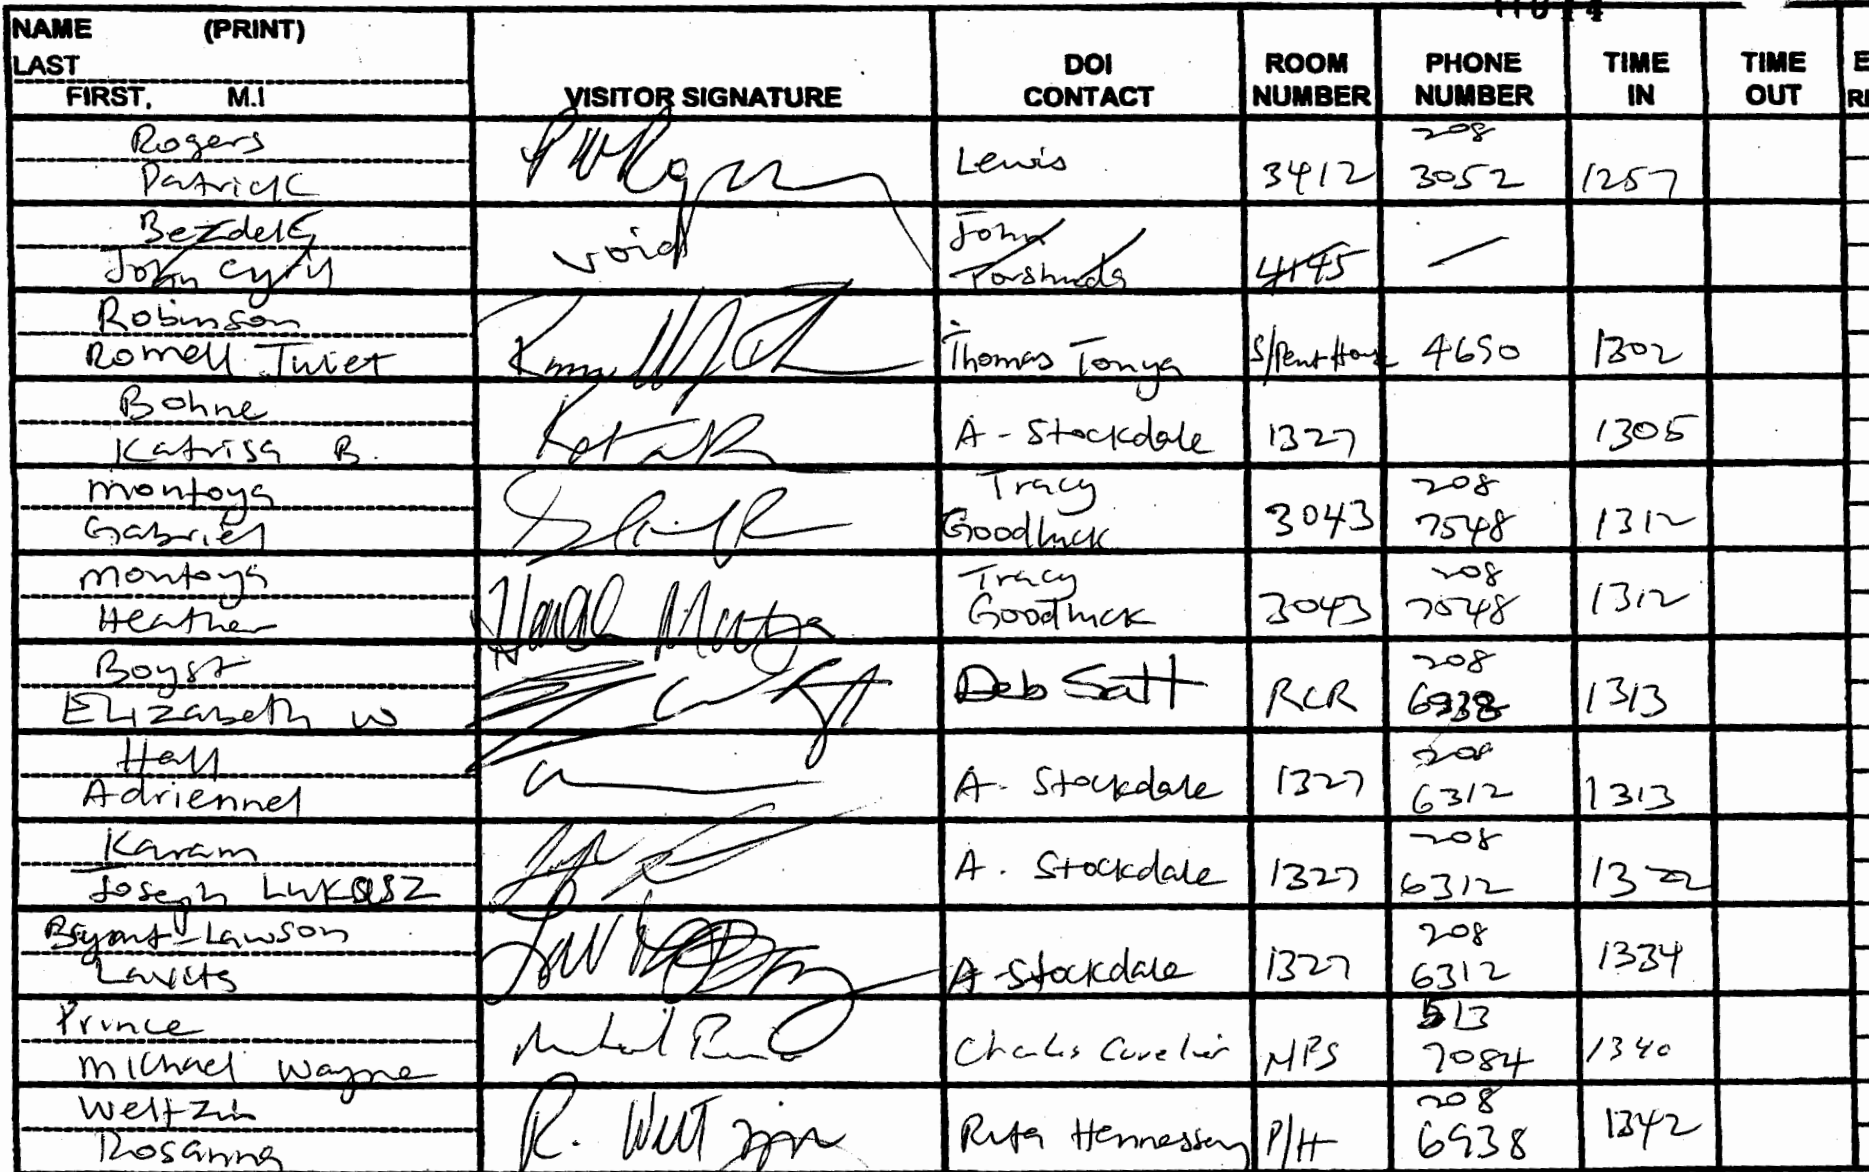 NAME (PRINT)
LAST
FIRST, M.I
VISITOR SIGNATURE
DOI CONTACT
ROOM NUMBER
PHONE NUMBER
TIME IN
TIME OUT
Rogers
Patrick
Lewis
3412
208
3052
1257
Bezdek
John Cyril
void
John
4145
Robinson
Romell Juliet
Thomas Tonya
S/Pent House
4690
1302
Bohne
Katrisa B.
A - Stockdale
1327
1305
Montoya
Gabriel
Tracy
Goodluck
3043
208
7548
1312
Montoya
Heather
Heather Montoya
Tracy
Goodluck
3043
208
7548
1312
Boyst
Elizabeth W
Deb Satt
RCR
208
6938
1313
Hall
Adriennel
A - Stockdale
1327
208
6312
1313
Karam
Joseph Lukasz
A. Stockdale
1327
208
6312
1322
Bryant-Lawson
A - Stockdale
1327
208
6312
1334
Prince
Michael Wayne
Charles Cuvelier
NPS
513
7084
1340
Weltzin
Rosanna
R. Weltzin
Ruta Hennessey
P/H
208
6938
1342